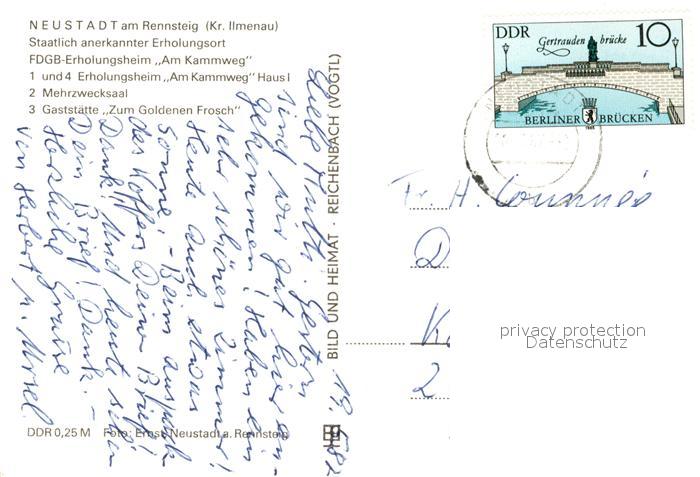 NEUSTADT am Rennsteig (Kr. Ilmenau)
Staatlich anerkannter Erholungsort
FDGB-Erholungsheim „Am Kammweg"
1 und 4 Erholungsheim „Am Kammweg" Haus I
2 Mehrzwecksaal
3 Gaststätte „Zum Goldenen Frosch"
Gestern
sind wir gut hier an-
gekommen! Haben ein
sehr schönes Zimmer!
Heute auch etwas
Sonne, - Beim auspack
des Koffers Dein Brief!
Dank! Und heute
Dein Brief! Dank. -
Herzliche Grüsse
von Herbert u. Ursel
DDR 0,25 M Foto: Ernst, Neustadt a. Rennsteig
BILD UND HEIMAT · REICHENBACH (VOGTL)
DDR
Gertraudenbrücke
10
BERLINER BRÜCKEN
1985
Fr. H.
D
K
2
privacy protection
Datenschutz